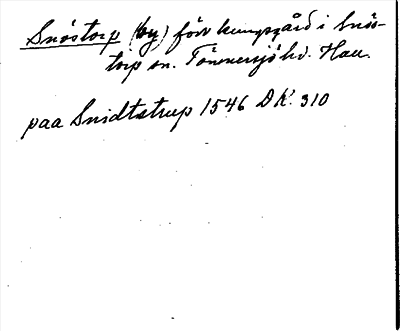 Snöstorp (by) förv kungsgård i Snös-
torp sn. Tönnersjö hd. Hall.
paa Snidtstrup 1546 DK: 310